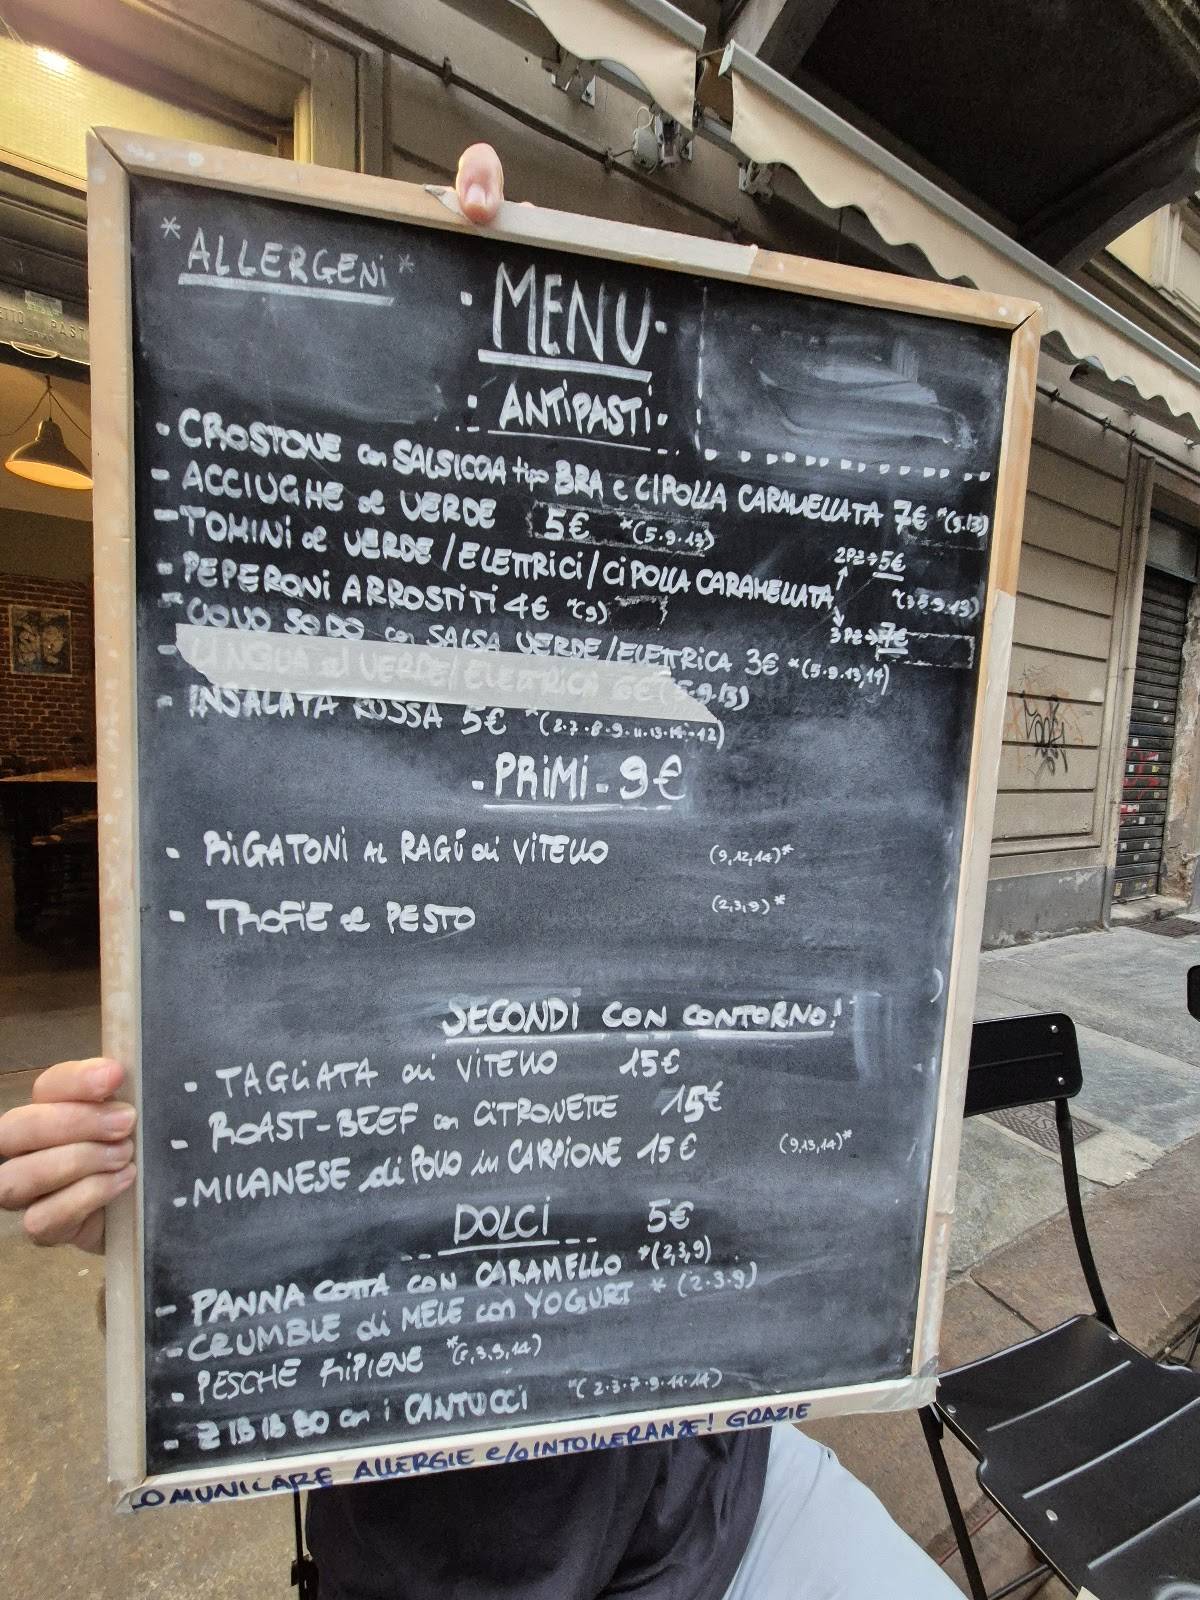 *ALLERGENi*
· MENU ·
· ANTiPASTi ·
· CROSTONE con SALSICCIA tipo BRA e CIPOLLA CARAMELLATA 7€
- ACCIUGHE al VERDE 5€ *(5.9.13)
- TOMINi al VERDE / ELETTRICI / CiPOLLA CARAMELLATA
2Pz→5€
3Pz→7€
- PEPERONI ARROSTITI 4€ *(9)
- UOVO SODO con SALSA VERDE / ELETTRICA 3€ *(5.9.13,14)
- LINGUA al VERDE / ELETTRICA 6€ (5.9.13)
- INSALATA RUSSA 5€
· PRiMi · 9€
· RiGATONi AL RAGÙ di ViTELLO (9,12,14)*
· TROFiE al PESTO (2,3,9)*
SECONDi CON CONTORNO!
· TAGLiATA di ViTELLO 15€
· ROAST-BEEF con CiTRONETTE 15€
· MILANESE di POLLO in CARPIONE 15€ (9,13,14)*
DOLCi 5€
- PANNA COTTA CON CARAMELLO *(2,3,9)
- CRUMBLE di MELE con YOGURT *(2.3.9)
· PESCHE RiPiENE
- ZIBIBBO con i CANTUCCI *(2.3.7.9.11.14)
COMUNICARE ALLERGIE e/o INTOLLERANZE! GRAZIE